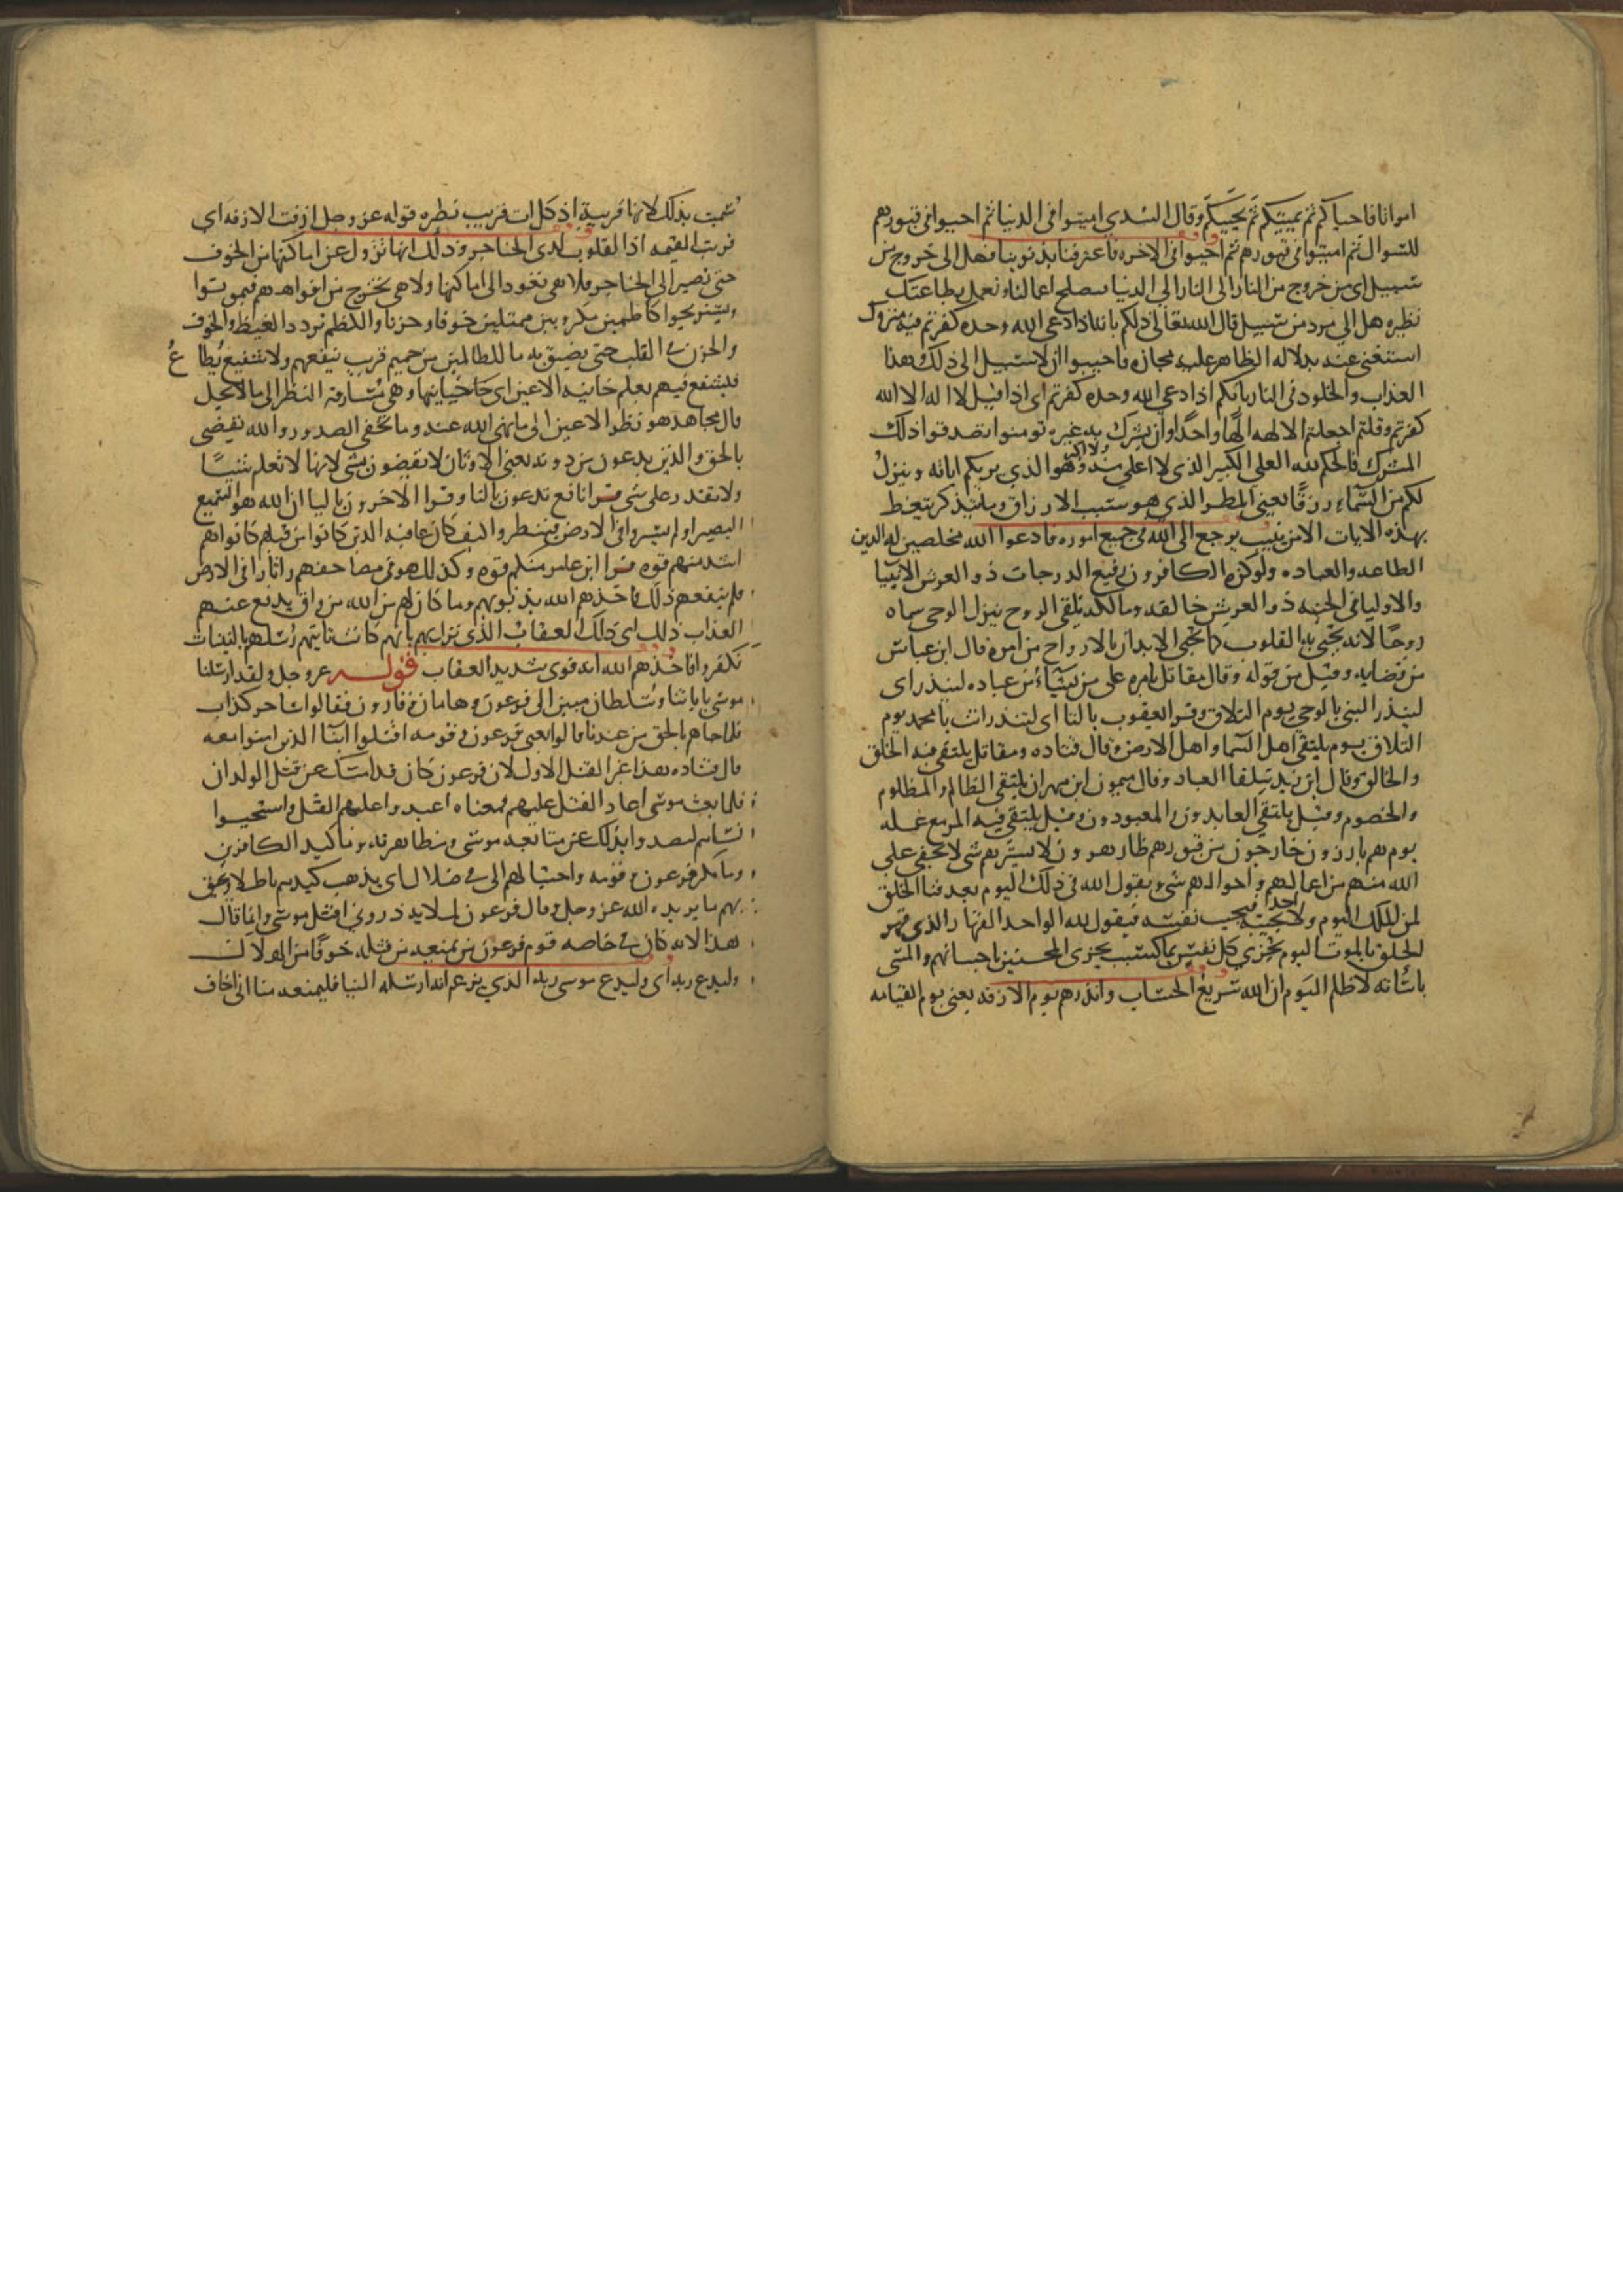 امواتا فاحياكم ثم يميتكم ثم يحييكم وقال السدي اميتوا في الدنيا ثم احيوا في قبورهم
للسوال ثم اميتوا في قبورهم ثم احيوا في الاخره فاعترفنا بذنوبنا فهل الى خروج من
سبيل اي من خروج من النار الى الدنيا فنصلح اعمالنا ونعمل بطاعتك
نظيره هل الى مرد من سبيل قال الله تعالى ذلكم بانه اذا دعي الله وحده كفرتم فيه متروك
استغني عنه بدلاله الظاهر عليه مجازه فاجيبوا ان لا سبيل الى ذلك هذا
العذاب والخلود في النار بانكم اذا دعي الله وحده كفرتم اي اذا قيل لا اله الا الله
كفرتم وقلتم اجعل الالهه الها واحدا وان يشرك به غيره تومنوا تصدقوا ذلك
المشرك فالحكم لله العلي الكبير الذي لا اعلى منه ولا اكبر هو الذي يريكم اياته وينزل
لكم من السماء رزقا يعني المطر الذي هو سبب الارزاق وما يتذكر يتعظ
بهذه الايات الا من ينيب يرجع الى الله في جميع اموره فادعوا الله مخلصين له الدين
الطاعه والعباده ولو كره الكافرون رفيع الدرجات ذو العرش الانبيا
والاوليا في الجنه ذو العرش خالقه ومالكه يلقي الروح ينزل الوحي سماه
روحا لانه يحيي به القلوب كما يحيي الابدان بالارواح من امره قال ابن عباس
من قضايه وقيل من قوله وقال مقاتل بامره على من يشاء من عباده لينذر اي
لينذر النبي بالوحي يوم التلاق وقرا يعقوب بالتا اي لتنذر انت يا محمد يوم
التلاق يوم يلتقي اهل السما واهل الارض وقال قتاده ومقاتل يلتقي فيه الخلق
والخالق وقال ابن زيد يتلقا العباد وقال ميمون ابن مهران يلتقي الظالم والمظلوم
والخصوم وقيل يلتقي العابدون والمعبودون وقيل يلتقي فيه المرمع عمله
يوم هم بارزون خارجون من قبورهم ظاهرون لا يسترهم شي لا يخفى على
الله منهم من اعمالهم واحوالهم شي ويقول الله في ذلك اليوم بعد فنا الخلق
لمن الملك اليوم ولا يجيبه احد فيجيب نفسه فيقول لله الواحد القهار الذي قهر
الخلق بالموت اليوم تجزى كل نفس بما كسبت يجزى المحسنين باحسانهم والمسي
باساته لا ظلم اليوم ان الله سريع الحساب وانذرهم يوم الازفه يعني يوم القيامه
سميت بذلك لانها قريبة اذ كل ات قريب نظيره قوله عز وجل ازفت الازفه اي
قربت القيمه اذ القلوب لدى الحناجر وذلك انها تزول عن اماكنها من الخوف
حتى تصير الى الحناجر فلا هي تعود الى اماكنها ولا هي تخرج من افواههم فيموتوا
ويستريحوا كاظمين مكروبين ممتلين خوفا وحزنا والكظم تردد الغيظ والخوف
والحزن في القلب حتى يضيق به ما للظالمين من حميم قريب ينفعهم ولا شفيع يطاع
فيشفع فيهم يعلم خاينه الاعين اي خيانتها وهي مسارقه النظر الى ما لا يحل
قال مجاهد هو نظر الاعين الى ما نهى الله عنه وما تخفي الصدور والله يقضي
بالحق والذين يدعون من دونه يعني الاوثان لا يقضون بشي لانها لا تعلم شيئا
ولا تقدر على شي قرا نافع تدعون بالتا وقرا الاخرون باليا ان الله هو السميع
البصير اولم يسيروا في الارض فينظروا كيف كان عاقبه الذين كانوا من قبلهم كانوا هم
اشد منهم قوه قرا ابن عامر منكم قوه وكذلك هو في مصاحفهم واثارا في الارض
فلم ينفعهم ذلك فاخذهم الله بذنوبهم وما كان لهم من الله من واق يدفع عنهم
العذاب ذلك اي ذلك العقاب الذي نزل بهم بانهم كانت تاتيهم رسلهم بالبينات
فكفروا فاخذهم الله انه قوي شديد العقاب قوله عز وجل ولقد ارسلنا
موسى باياتنا وسلطان مبين الى فرعون وهامان وقارون فقالوا ساحر كذاب
فلما جاهم بالحق من عندنا قالوا يعني فرعون وقومه اقتلوا ابنا الذين امنوا معه
قال قتاده هذا غير القتل الاول لان فرعون كان قد امسك عن قتل الولدان
فلما بعث موسى اعاد القتل عليهم فمعناه اعيدوا عليهم القتل واستحيوا
نساهم ليصدوا بذلك عن متابعه موسى ومظاهرته وما كيد الكافرين
وما مكر فرعون وقومه واحتيالهم الا في ضلال اي يذهب كيدهم باطلا ويحيق
بهم ما يريده الله عز وجل وقال فرعون لملايه ذروني اقتل موسى وانما قال
هذا لانه كان في خاصه قوم فرعون من يمنعه من قتله خوفا من الهلاك
وليدع ربه اي وليدع موسى ربه الذي يزعم انه ارسله الينا فليمنعه منا اني اخاف